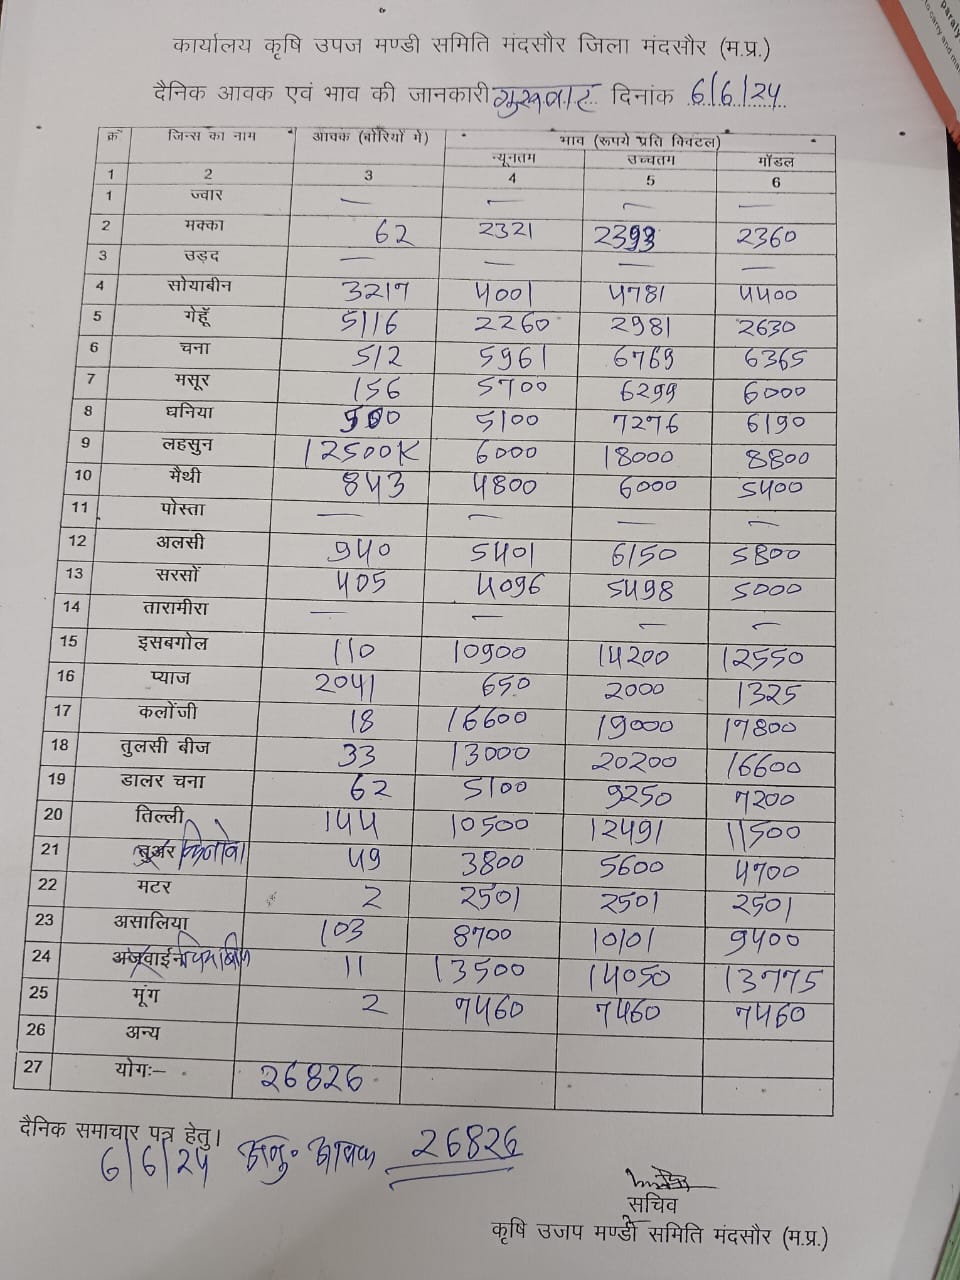 कार्यालय कृषि उपज मण्डी समिति मंदसौर जिला मंदसौर (म.प्र.)
दैनिक आवक एवं भाव की जानकारी गुरुवार दिनांक 6/6/24
क्रं जिन्स का नाम आवक (बोरियों में) भाव (रूपये प्रति क्विंटल)
न्यूनतम उच्चतम मॉडल
1 2 3 4 5 6
1 ज्वार — — — —
2 मक्का 62 2321 2393 2360
3 उड़द — — — —
4 सोयाबीन 3217 4001 4781 4400
5 गेहूँ 5116 2260 2981 2630
6 चना 512 5961 6769 6365
7 मसूर 156 5700 6299 6000
8 धनिया 5100 7276 6190
9 लहसुन 12500K 6000 18000 8800
10 मैथी 843 4800 6000 5400
11 पोस्ता — — — —
12 अलसी 940 5401 6150 5800
13 सरसों 405 4096 5498 5000
14 तारामीरा — — — —
15 इसबगोल 110 10900 14200 12550
16 प्याज 2041 650 2000 1325
17 कलोंजी 18 16600 19000 17800
18 तुलसी बीज 33 13000 20200 16600
19 डालर चना 62 5100 9250 7200
20 तिल्ली 144 10500 12491 11500
21 तुअर किनोवा 49 3800 5600 4700
22 मटर 2 2501 2501 2501
23 असालिया 103 8700 10101 9400
24 अजवाईन 11 13500 14050 13775
25 मूंग 2 7460 7460 7460
26 अन्य
27 योगः– 26826
दैनिक समाचार पत्र हेतु।
6/6/24 अनु॰ आवक 26826
सचिव
कृषि उजप मण्डी समिति मंदसौर (म.प्र.)